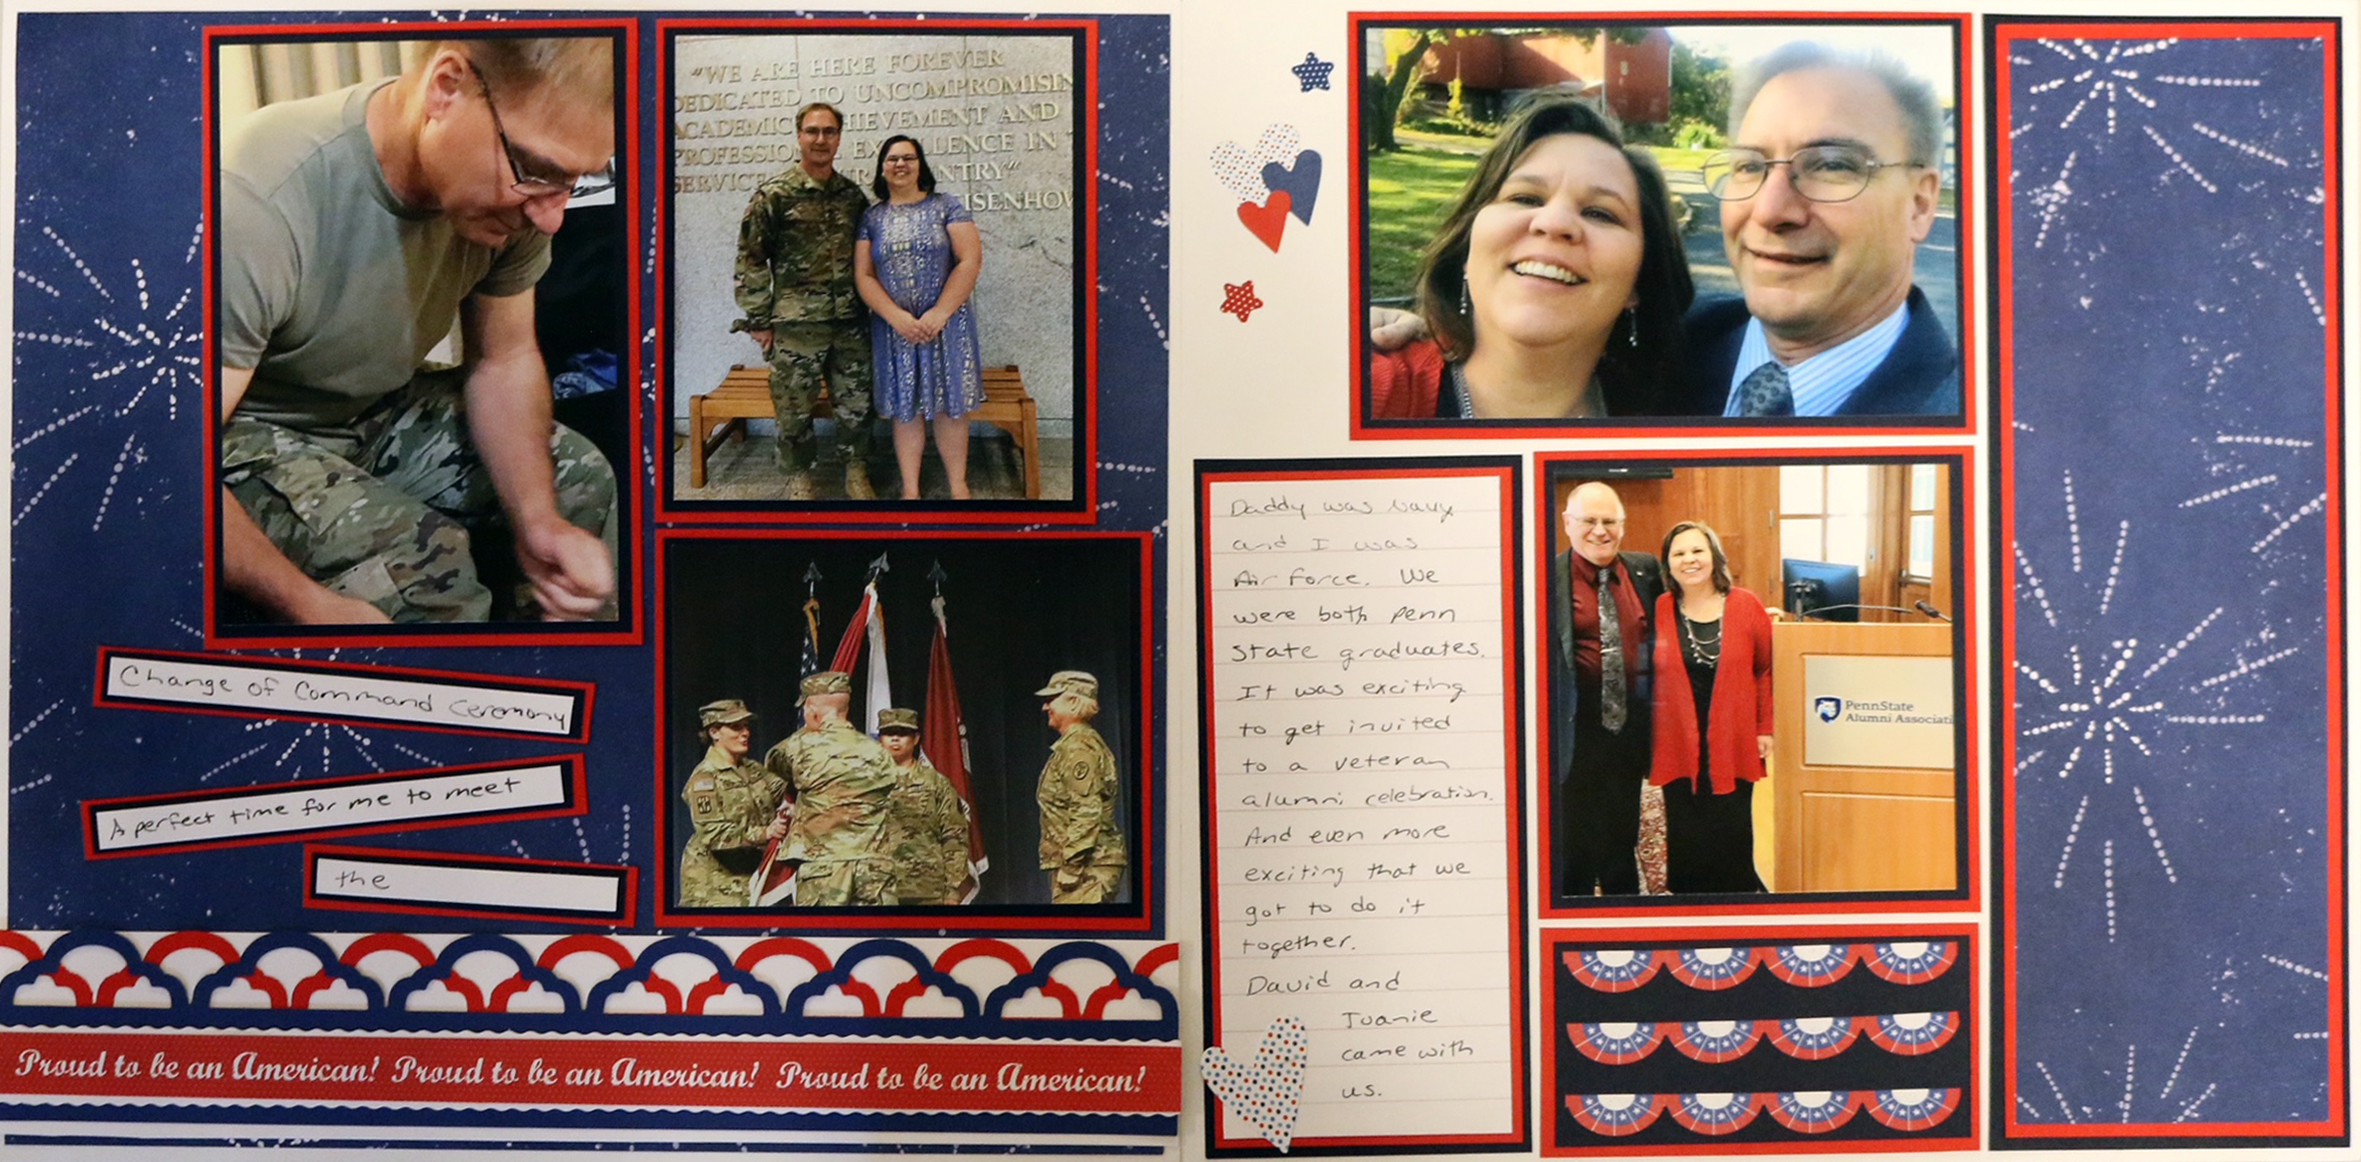 "WE ARE HERE FOREVER
DEDICATED TO UNCOMPROMISIN
ACADEMIC HIEVEMENT AND
PROFESSION EXCELLENCE IN
SERVIC NTRY"
ISENHOW
Change of Command Ceremony
A perfect time for me to meet
the
Proud to be an American! Proud to be an American! Proud to be an American!
Daddy was Navy
and I was
Air Force. We
were both Penn
State graduates.
It was exciting
to get invited
to a veteran
alumni celebration.
And even more
exciting that we
got to do it
together.
David and
Juanie
came with
us.
PennState
Alumni Associati